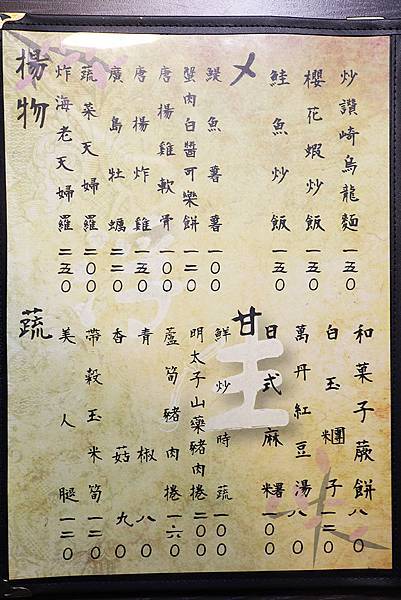 炒讚崎烏龍麵一五〇
櫻花蝦炒飯一五〇
鮭魚炒飯一五〇
〆
鯷魚薯薯一〇〇
蟹肉白醬可樂餅一二〇
唐楊雞軟骨一〇〇
唐楊炸雞一五〇
廣島牡蠣二二〇
蔬菜天婦羅二〇〇
炸海老天婦羅二五〇
揚物
和菓子蕨餅八〇
白玉糰子一二〇
萬丹紅豆湯八〇
日式麻糬一〇〇
甘
鮮炒時蔬一〇〇
明太子山藥豬肉捲二〇〇
蘆筍豬肉捲一六〇
青椒八〇
香菇九〇
帶穀玉米筍一二〇
美人腿一二〇
蔬